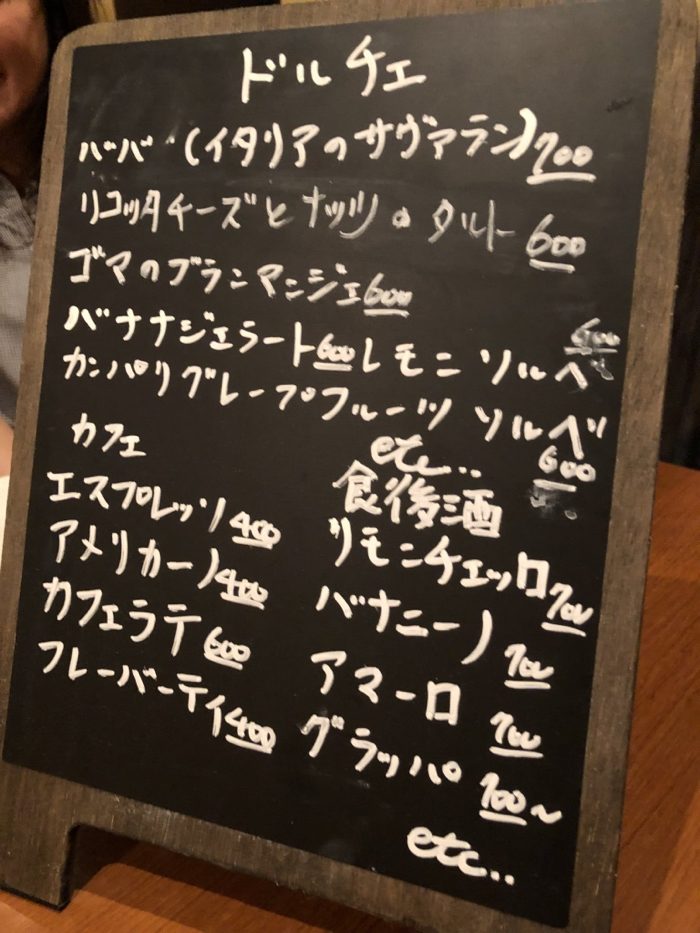 ドルチェ
ババ (イタリアのサヴァラン) 700
リコッタチーズとナッツのタルト 600
ゴマのブランマンジェ 600
バナナジェラート 600 レモニソルベ 600
カンパリグレープフルーツ ソルベ 600
etc..
カフェ
エスプレッソ 400
アメリカーノ 400
カフェラテ 600
フレーバーティ 400
食後酒
リモニチェッロ 700
バナニーノ 700
アマーロ 700
グラッパ 700~
etc..